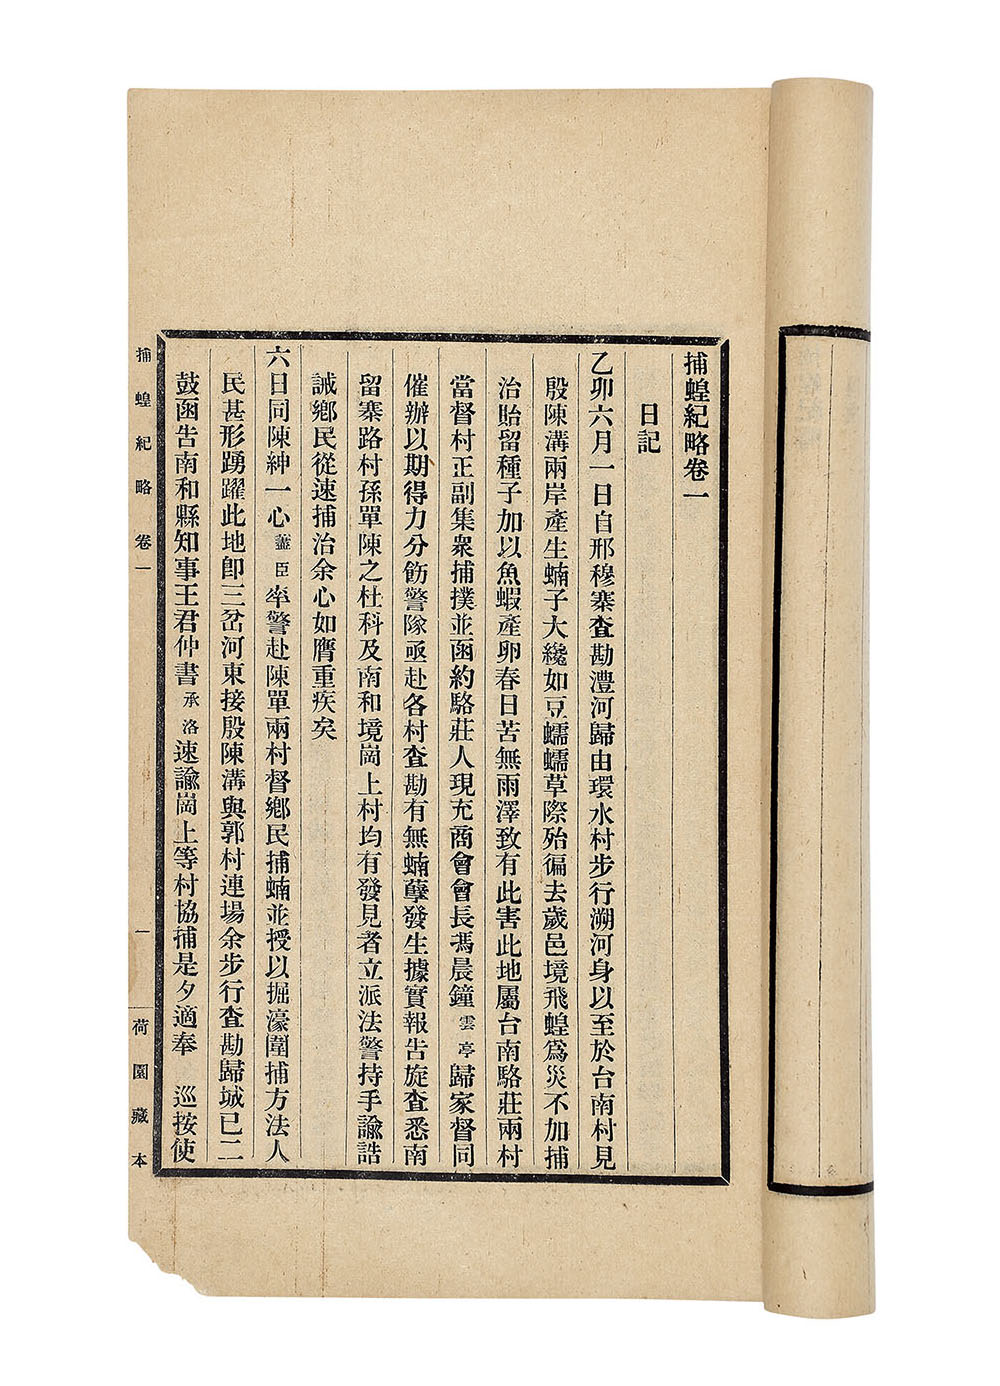 捕蝗紀略卷一
日記
乙卯六月一日自邢穆寨查勘澧河歸由環水村步行溯河身以至於台南村見
殷陳溝兩岸產生蝻子大纔如豆蠕蠕草際殆徧去歲邑境飛蝗爲災不加捕
治貽留種子加以魚蝦產卵春日苦無雨澤致有此害此地屬台南駱莊兩村
當督村正副集衆捕撲並函約駱莊人現充商會會長馮晨鐘雲亭歸家督同
催辦以期得力分飭警隊亟赴各村查勘有無蝻孽發生據實報告旋查悉南
留寨路村孫單陳之杜科及南和境崗上村均有發見者立派法警持手諭誥
誡鄉民從速捕治余心如膺重疾矣
六日同陳紳一心藎臣率警赴陳單兩村督鄉民捕蝻並授以掘濠圍捕方法人
民甚形踴躍此地卽三岔河東接殷陳溝與郭村連場余步行查勘歸城已二
鼓函告南和縣知事王君仲書承洛速諭崗上等村協捕是夕適奉 巡按使
捕蝗紀略 卷一 一 荷園藏本